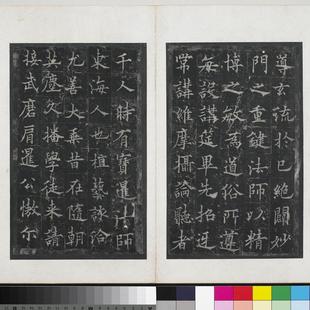 導玄流於已絕闢妙
門之重鍵法師以精
博之敏為道俗所遵
每設講筵畢先招迓
常講維摩攝論聽者
千人時有寶暹法師
東海人也殖藝該洽
尤善大乘昔在隋朝
英塵久播學徒來請
接武磨肩暹公傲尓